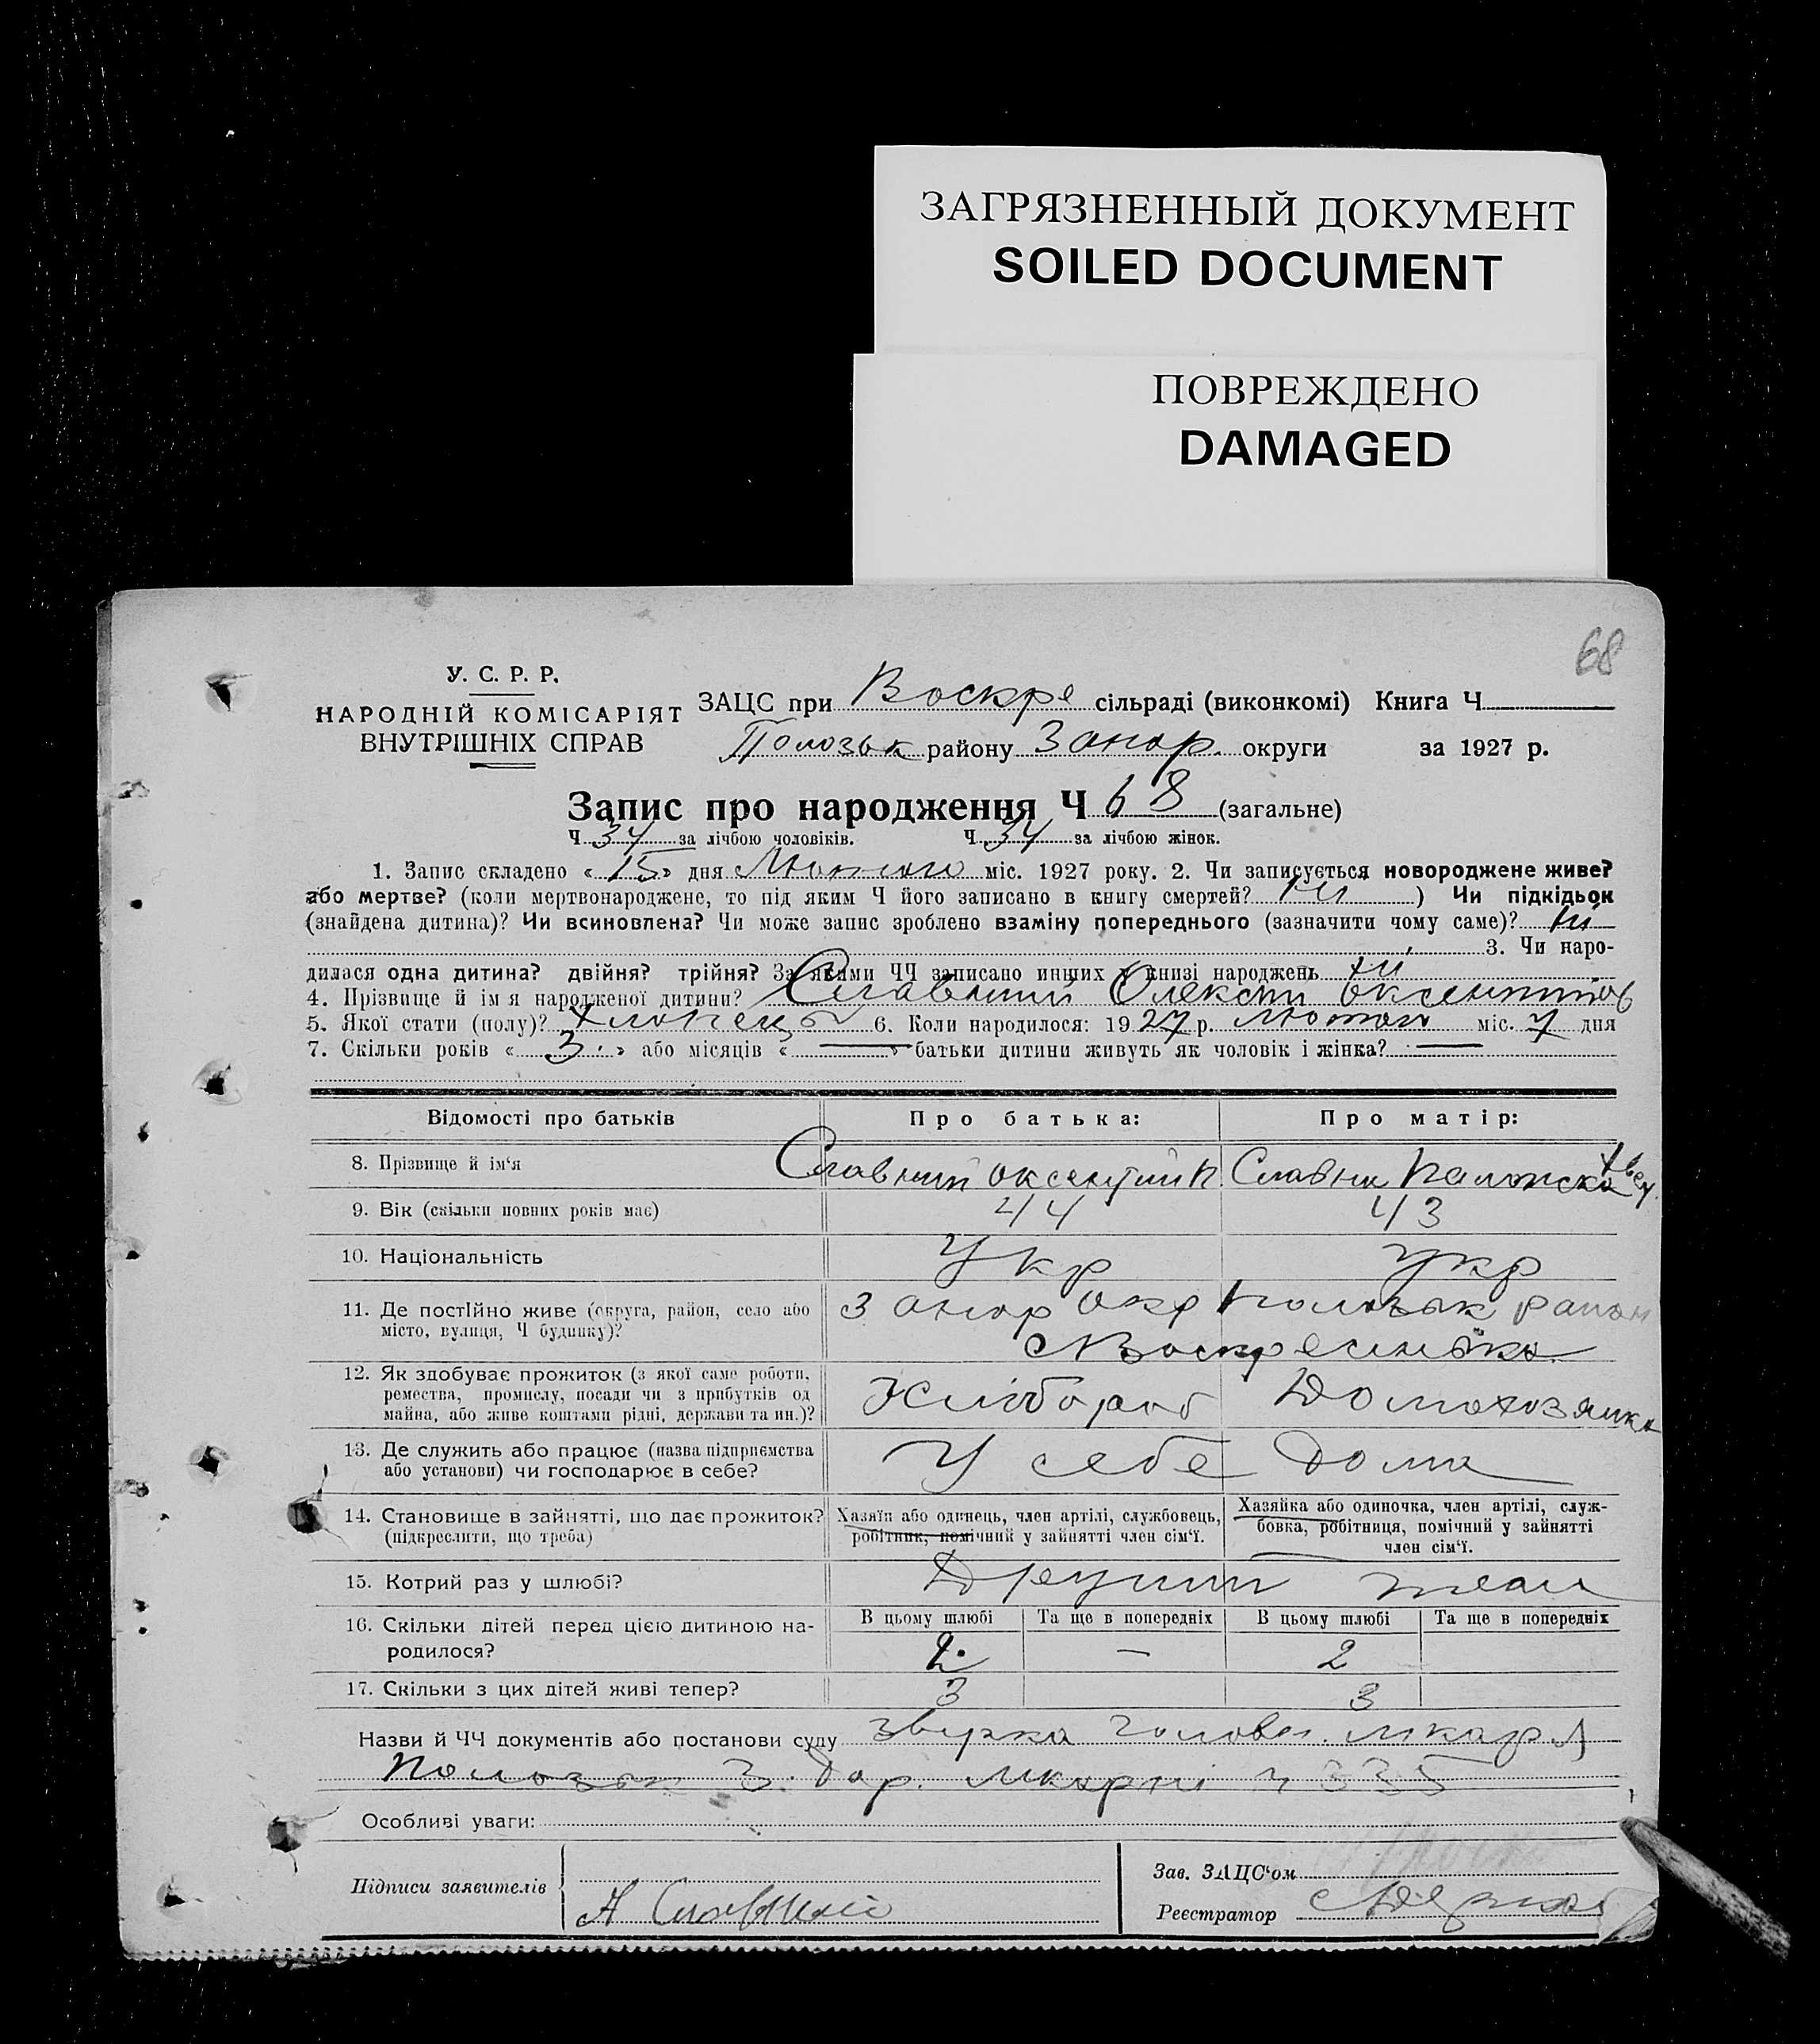 ЗАГРЯЗНЕННЫЙ ДОКУМЕНТ
SOILED DOCUMENT
ПОВРЕЖДЕНО
DAMAGED
68
У. С. Р. Р.
НАРОДНІЙ КОМІСАРІЯТ
ВНУТРІШНІХ СПРАВ
ЗАЦС при Воскре сільраді (виконкомі) Книга Ч
Полозьк району Запор. округи за 1927 р.
Запис про народження Ч 68 (загальне)
Ч 34 за лічбою чоловіків. Ч 34 за лічбою жінок.
1. Запис складено « 15 » дня Лютого міс. 1927 року. 2. Чи записується новороджене живе?
або мертве? (коли мертвонароджене, то під яким Ч його записано в книгу смертей? ні ) Чи підкідьок
(знайдена дитина)? Чи всиновлена? Чи може запис зроблено взаміну попереднього (зазначити чому саме)? ні
3. Чи наро-
дилася одна дитина? двійня? трійня? За якими ЧЧ записано инших у книзі народжень ні
4. Прізвище й ім я народженої дитини? Славний Олексій
5. Якої стати (полу)? хлопець 6. Коли народилося: 1927 р. лютого міс. 7 дня
7. Скільки років « 3 » або місяців « — » батьки дитини живуть як чоловік і жінка? —
Відомості про батьків Про батька: Про матір:
8. Прізвище й ім'я Славний Оксентий П. Славна
9. Вік (скільки повних років має) 44 43
10. Національність Укр укр
11. Де постійно живе (округа, район, село або Запор окр Полозьк район
місто, вулиця, Ч будинку)? с Воскресенька
12. Як здобуває прожиток (з якої саме роботи,
ремества, промислу, посади чи з прибутків од Хлібороб Домохозяйка
майна, або живе коштами рідні, держави та ин.)?
13. Де служить або працює (назва підприємства У себе дома
або установи) чи господарює в себе?
14. Становище в зайнятті, що дає прожиток? Хазяїн або одинець, член артілі, службовець, Хазяйка або одиночка, член артілі, служ-
(підкреслити, що треба) робітник, помічний у зайнятті член сім'ї. бовка, робітниця, помічний у зайнятті
член сім'ї.
15. Котрий раз у шлюбі?
16. Скільки дітей перед цією дитиною на- В цьому шлюбі Та ще в попередніх В цьому шлюбі Та ще в попередніх
родилося? 2 — 2
17. Скільки з цих дітей живі тепер? 3 3
Назви й ЧЧ документів або постанови суду
335
Особливі уваги:
Підписи заявителів А Славний
Зав. ЗАЦС'ом
Реєстратор